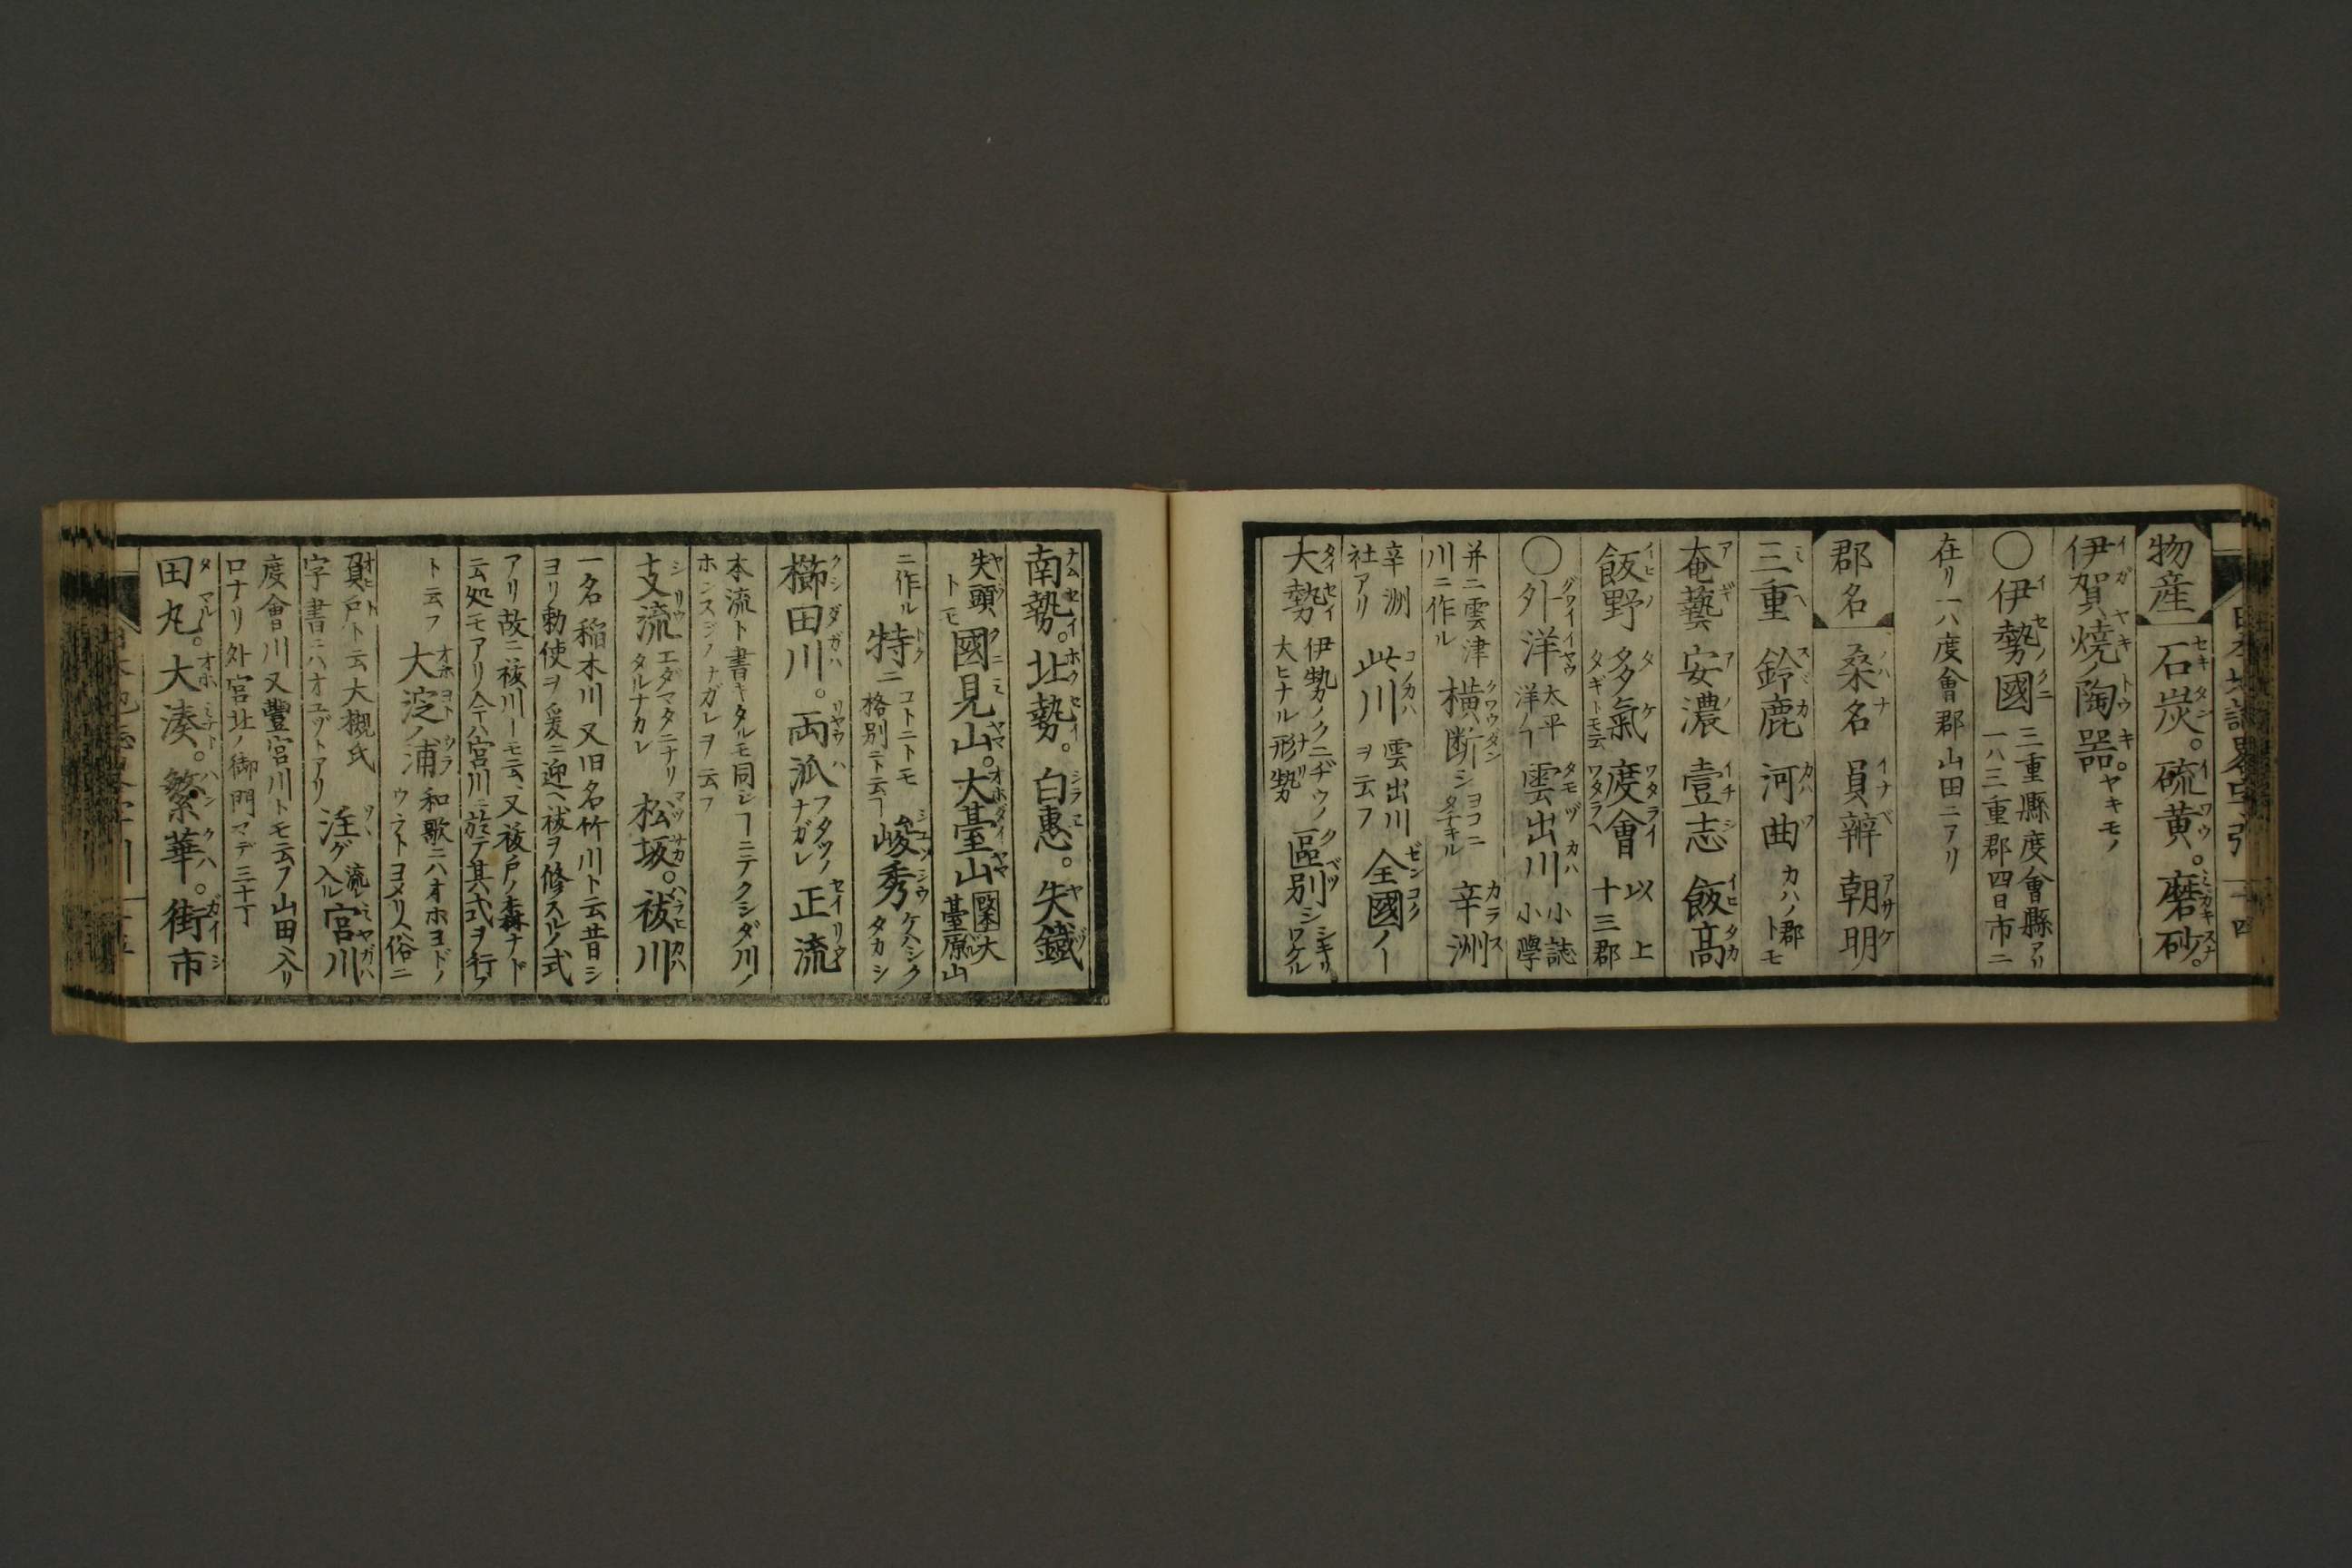 物産 石炭。硫黄。磨砂。
伊賀焼ノ陶器。ヤキモノ
〇伊勢國 三重縣度會縣アリ一ハ三重郡四日市ニ
在リ一ハ度會郡山田ニアリ
郡名 桑名 員辨 朝明
三重 鈴鹿 河曲 カハノ郡トモ
奄藝 安濃 壹志 飯髙
飯野 多氣 度會 以上十三郡
〇外洋 太平洋ヿ 雲出川 小誌小學
并ニ雲津川ニ作ル 横断シ ヨコニタチキル 辛洲
辛洲社アリ 此川 雲出川ヲ云フ 全國ノヿ
大勢 伊勢ノクニヂウノ大ヒナル形勢 區別シ シキリワケル
南勢。北勢。白惠。矢鐡
矢頭トモ 國見山。大臺山 大臺原山
ニ作ル 特ニ コトニトモ格別ニト云ヿ 峻秀 ケハシクタカシ
櫛田川。両派 フタツノナガレ 正流
本流ト書キタルモ同ジヿニテクシダ川ノ
ホンスジノナガレヲ云フ
支流 エダマタニナリタルナカレ 松坂。祓川
一名稲木川又旧名竹川ト云昔シ
ヨリ勅使ヲ爰ニ迎ヘ祓ヲ修スルノ式
アリ故ニ祓川ーモ云又祓戸ノ森ナド
云処モアリ今ハ宮川ニ於テ其式ヲ行フ
ト云フ 大淀ノ浦 和歌ニハオホヨドノウラトヨメリ俗ニ
負戸ト云大槻氏字書ニハオユヅトアリ 注グ 流レ入ル 宮川
度會川又豐宮川トモ云フ山田入リ
口ナリ外宮北ノ御門マデ三十丁
田丸。大湊。繁華。街市